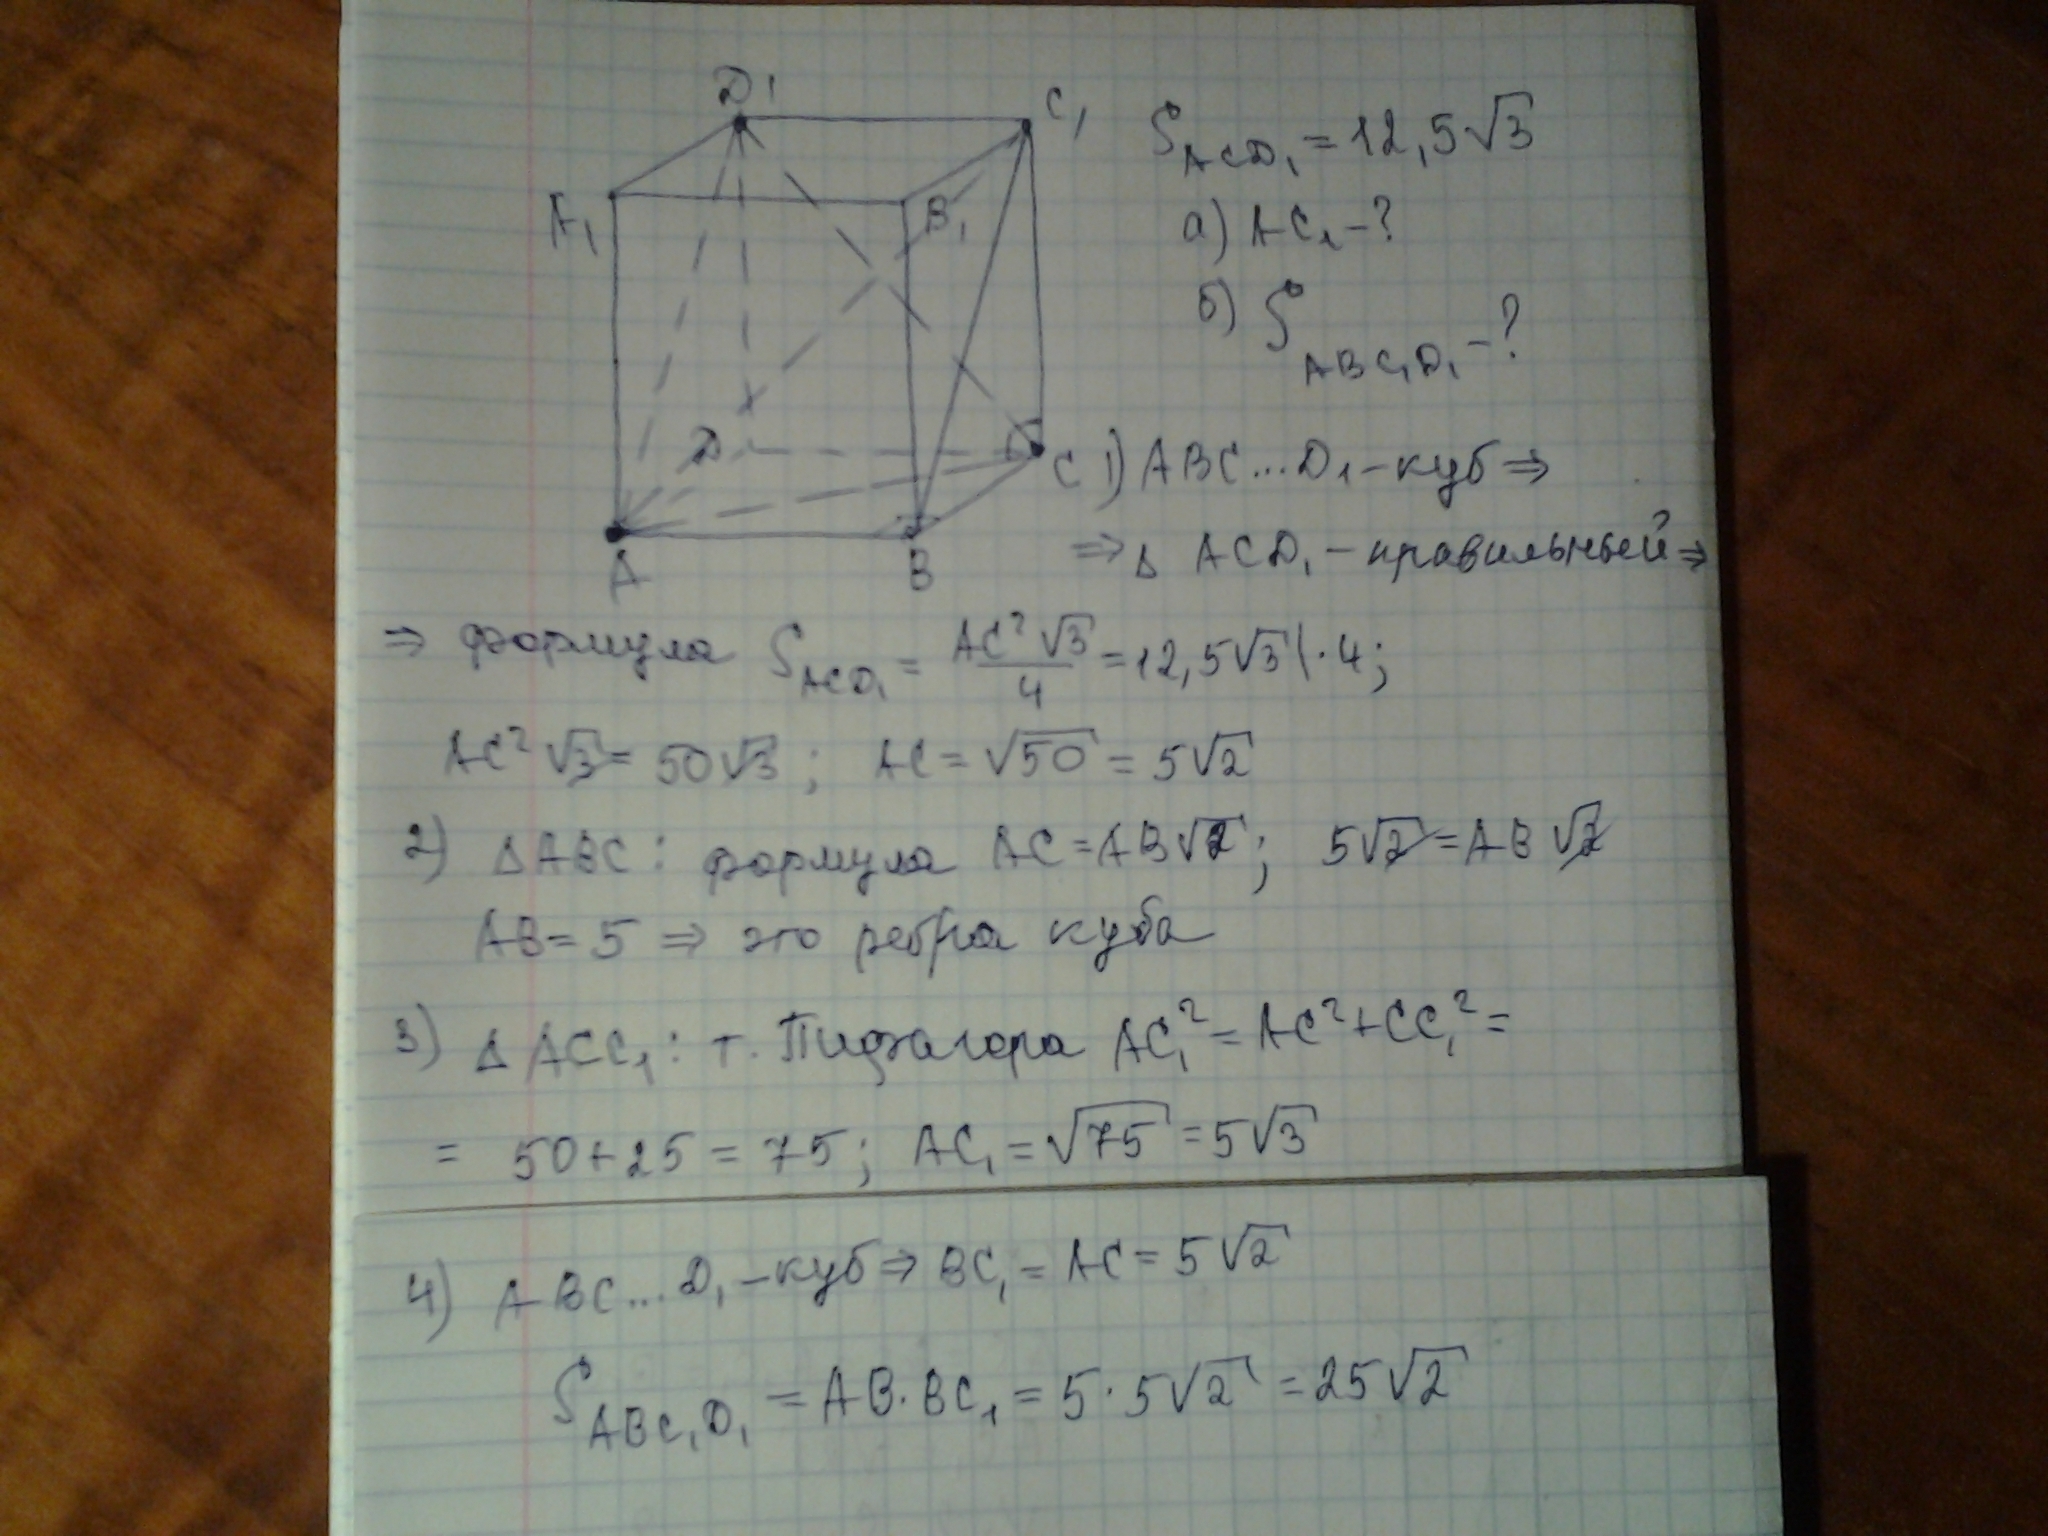 D₁
C₁
A₁
B₁
D
C
A
B
S_ACD₁ = 12,5√3
а) AC₁ - ?
б) S_ABC₁D₁ - ?
1) ABC...D₁ - куб ⇒
⇒ Δ ACD₁ - правильный ⇒
⇒ формула S_ACD₁ = AC²√3/4 = 12,5√3 | · 4;
AC²√3 = 50√3; AC = √50 = 5√2
2) ΔABC: формула AC = AB√2; 5√2 = AB√2
AB = 5 ⇒ это ребра куба
3) Δ ACC₁: т. Пифагора AC₁² = AC² + CC₁² =
= 50 + 25 = 75; AC₁ = √75 = 5√3
4) ABC...D₁ - куб ⇒ BC₁ = AC = 5√2
S_ABC₁D₁ = AB · BC₁ = 5 · 5√2 = 25√2